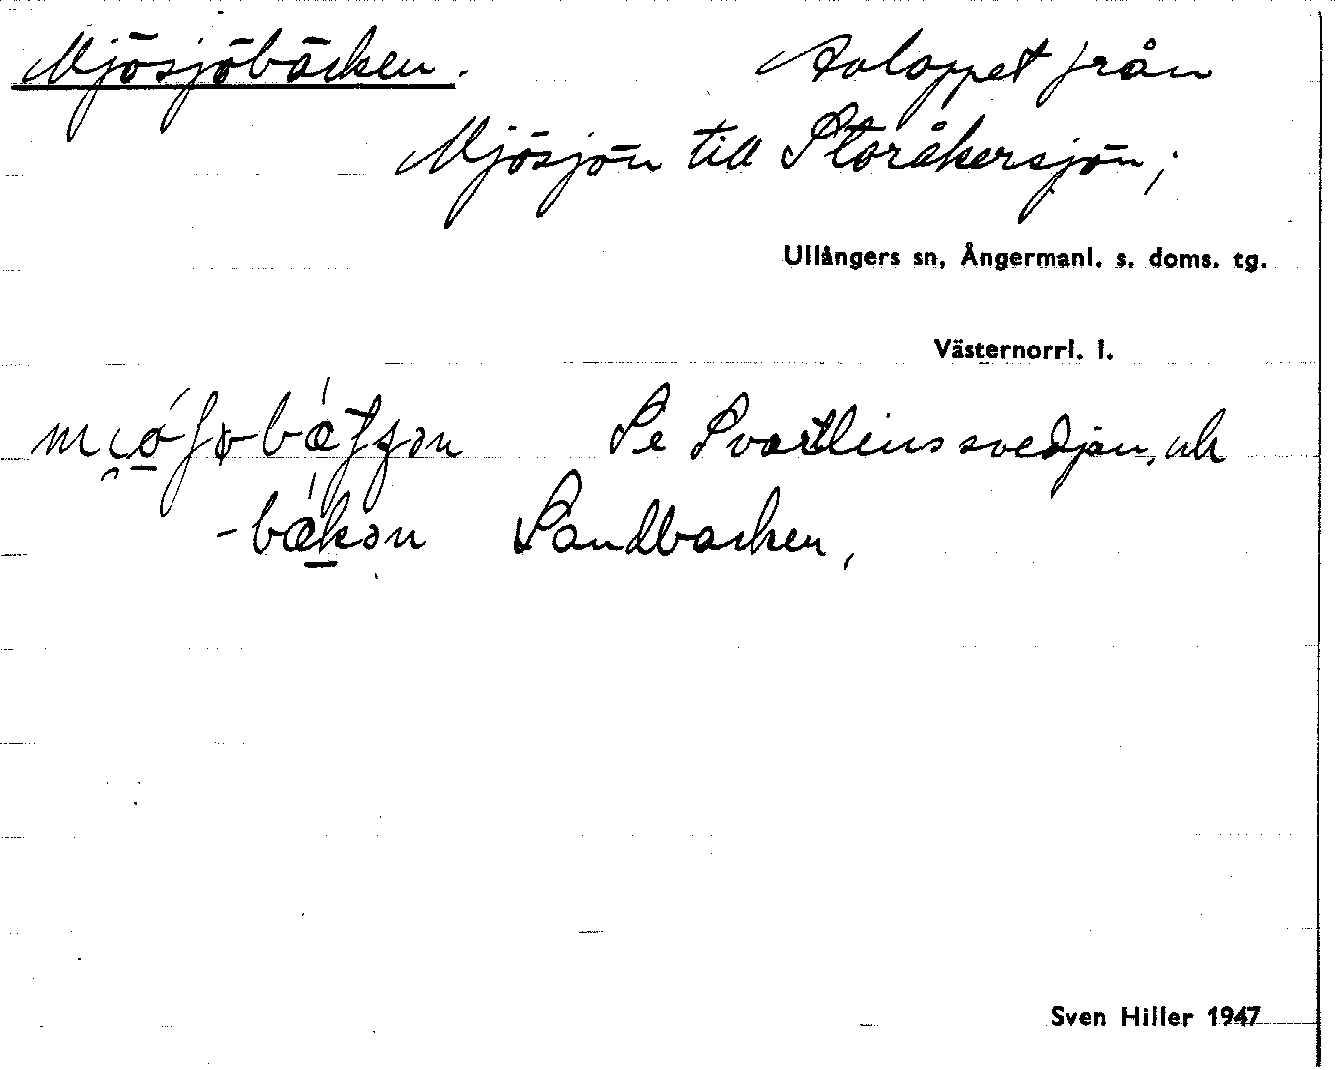 Mjösjöbäcken. Avloppet från
Mjösjön till Storåkersjön;
Ullångers sn, Ångermanl. s. doms. tg.
Västernorrl. l.
Se Svartlenssvedjan, ok
-bækən Sandbacken,
Sven Hiller 1947